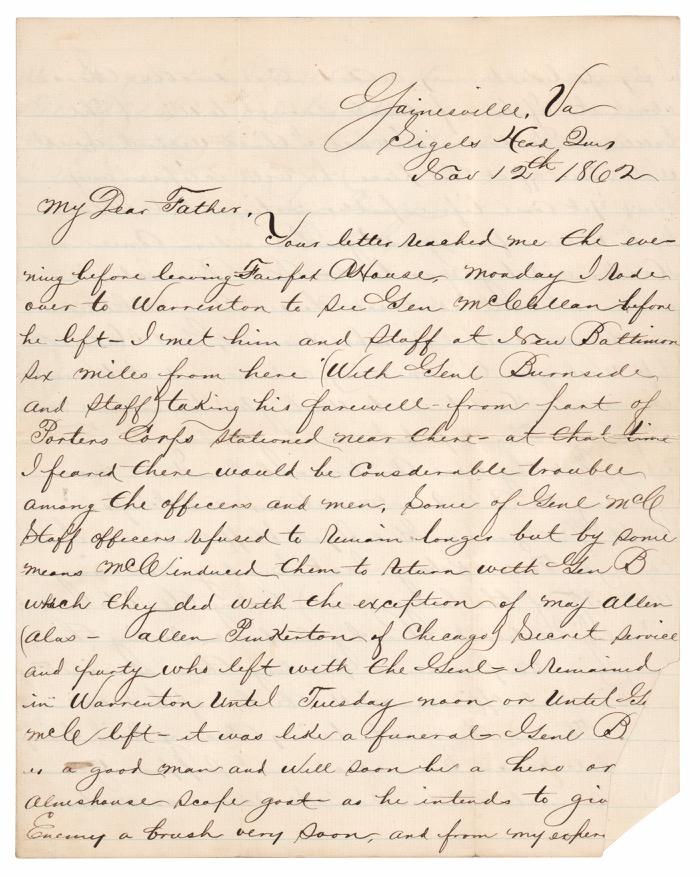 Gainesville, Va
Sigels Head Qurs
Nov 12th 1862
My Dear Father,
Your letter reached me the eve-
ning before leaving Fairfax CHouse, Monday I rode
over to Warrenton to see Gen McClellan before
he left- I met him and staff at New Baltimore
six miles from here (With Genl Burnside
and staff) taking his farewell- from part of
Porters Corps stationed near there- at that time
I feared there would be considerable trouble
among the officers and men, Some of Genl McC
Staff officers refused to remain longer but by some
means McC induced them to return with Gen B
which they did with the exception of Maj Allen
(alas- allen Pinkerton of Chicago) Secret Service
and party who left with the Genl- I remained
in Warrenton Until Tuesday noon or Until G
McC left- it was like a funeral- Genl B
is a good man and will soon be a hero or
Almshouse scape goat- as he intends to giv
Enemy a brush very soon, and from my exper